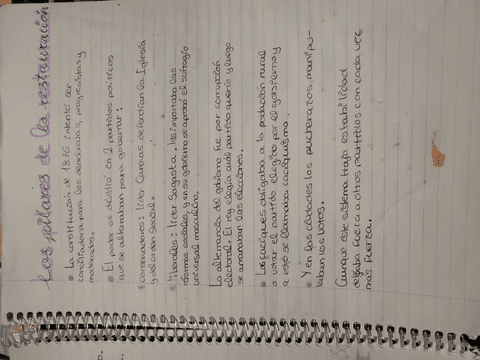 Los pilares de la restauración
• La constitución de 1876 intentó ser
conciliadora para los demócratas, progresistas y
moderados.
• El poder se dividió en 2 partidos políticos
que se alternaban para gobernar:
* Conservadores: líder Canovas defendían la Iglesia
y el orden social.
* Liberales: líder Sagasta, les importaba las
reformas sociales, y en su gobierno se aprobó el sufragio
universal masculino.
La alternancia del gobierno fue por corrupción
electoral. El rey elegía qué partido quería y luego
se amañaban las elecciones.
• Los caciques obligaba a la población rural
a votar el partido elegido por el gobierno y
a esto se llamaba caciquismo.
• Y en las ciudades los pucherazos, manipu-
laban los votos.
Aunque este sistema trajo estabilidad
dejaba fuera a otros partidos con cada vez
más fuerza.